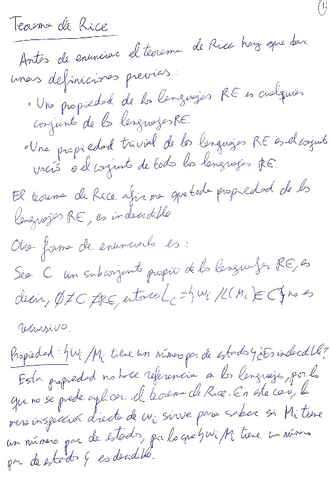 1
Teorema de Rice
Antes de enunciar el teorema de Rice hay que dar
unas definiciones previas:
• Una propiedad de los lenguajes RE es cualquier
conjunto de los lenguajes RE.
• Una propiedad trivial de los lenguajes RE es el conjunto
vacío o el conjunto de todos los lenguajes RE.
El teorema de Rice afirma que toda propiedad de los
lenguajes RE, es indecidible
Otra forma de enunciarlo es:
Sea C un subconjunto propio de los lenguajes RE, es
decir, ∅ ≠ C ≠ RE, entonces L_C = {w_i / L(M_i) ∈ C} no es
recursivo.
Propiedad: {w_i / M_i tiene un número par de estados} ¿Es indecidible?
Esta propiedad no hace referencia a los lenguajes, por lo
que no se puede aplicar el teorema de Rice. En este caso, la
mera inspección directa de w_i sirve para saber si M_i tiene
un número par de estados, por lo que {w_i / M_i tiene un número
par de estados} es decidible.